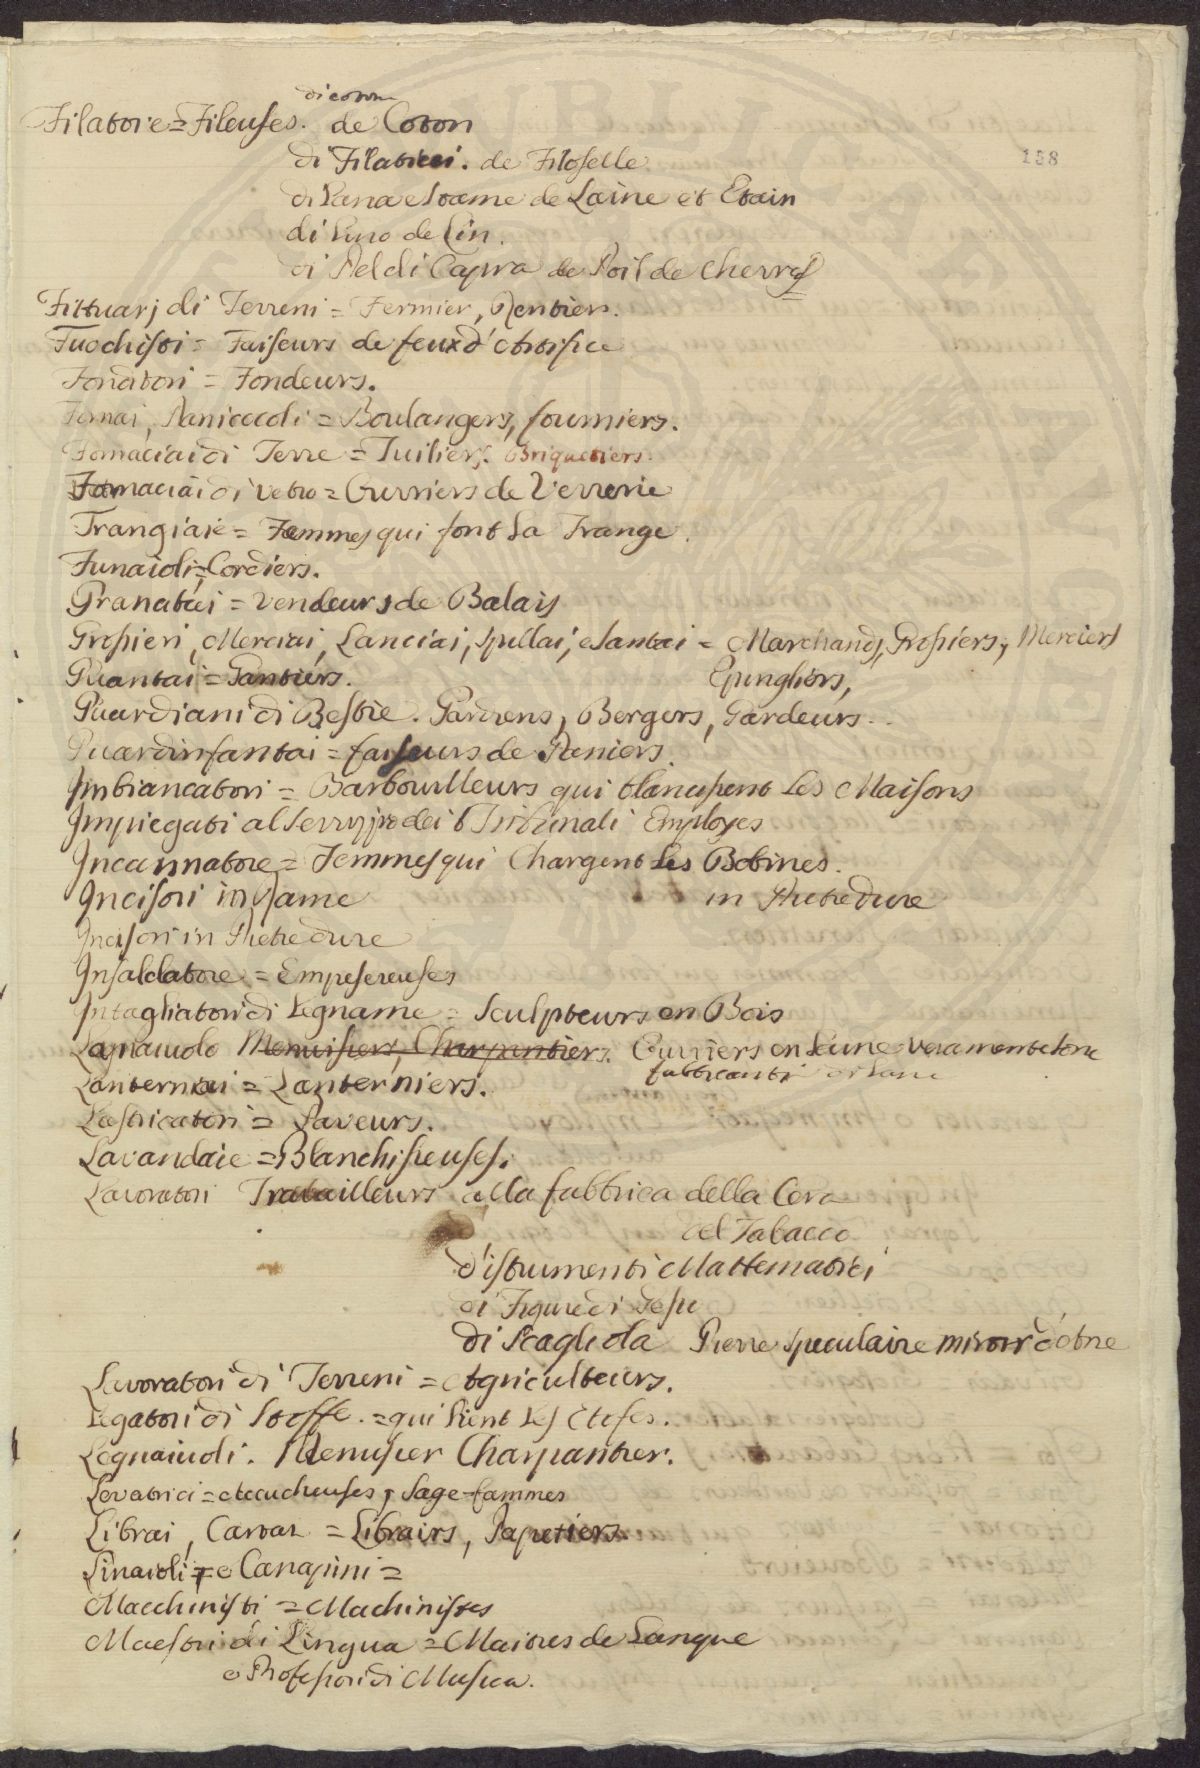 158
di coton
Filatore = Fileuses. de Coton
di Filaticci. de Filoselle.
di Lana e Stame de Laine et Etain
di Lino de Lin.
di Pel di Capra de Poil de Chevre
Fittuarj di Terreni = Fermier, Rentiers.
Fuochisti = Faiseurs de feux d'Artifice
Fonditori = Fondeurs.
Fornai, Panicocoli = Boulangers, fourniers.
Fornaciai di Terre = Tuiliers. Briquetiers.
Fornaciai di Vetro = Ouvriers de Verrerie
Frangiaie = Femmes qui font La Frange.
Funaioli = Cordiers.
Granatai = Vendeurs de Balais
Grossieri, Merciai, Lanciai, Spillai, e Santai = Marchands, Grossiers, Merciers
Epingliers,
Guantai = Gantiers.
Guardiani di Bestie. Gardiens, Bergers, Gardeurs.
Guardinfantai = faiseurs de Paniers.
Imbiancatori = Barbouilleurs qui blanchissent Les Maisons
Impiegati al Servizio dei Tribunali Employes
Incannatore = Femmes qui Chargent Les Bobines.
Incisori in Rame in Pietre dure
Incisori in Pietre dure
Insaldatore = Empesereuses
Intagliatori di Legname = Sculpteurs en Bois
Lagnaiuolo Menuisiers, Charpentiers. Ouvriers en Leine veramente sono
fabbricanti di Lane
Lanternai = Lanterniers.
Lastricatori = Paveurs.
Lavandaie = Blanchisseuses.
Lavoratori Travailleurs alla fabbrica della Cera
del Tabacco
d'istrumenti Mattematici
di Figure di Gesso
di Scagliola Pierre speculaire miroir d'Ane
Lavoratori di Terreni = Agriculteurs.
Legatori di Stoffe. = qui Lient Les Etofes.
Legnaiuoli. Menusier Charpantier.
Levatrici = Accucheuses, Sage-fammes
Librai, Cartai = Librairs, Papetiers.
Linaioli = e Canapini =
Macchinisti = Machinistes
Maestri di Lingua = Maitres de Langue
e Professori di Musica.